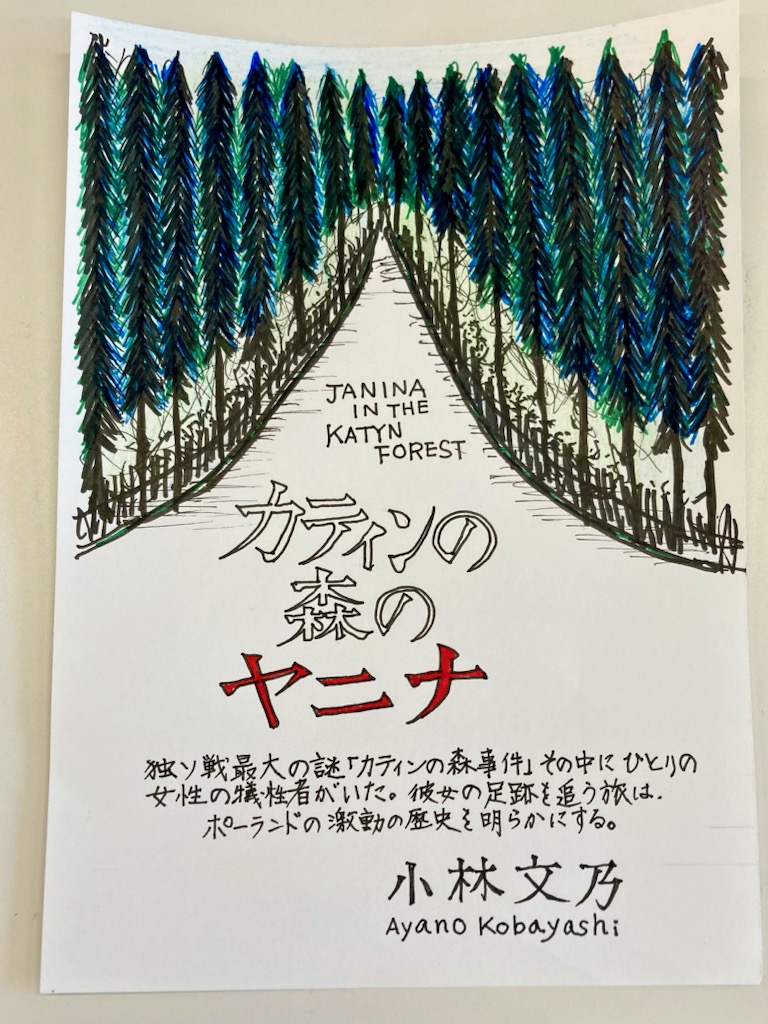 JANINA
IN THE
KATYN
FOREST
カティンの
森の
ヤニナ
独ソ戦最大の謎「カティンの森事件」その中にひとりの
女性の犠牲者がいた。彼女の足跡を追う旅は、
ポーランドの激動の歴史を明らかにする。
小林文乃
Ayano Kobayashi